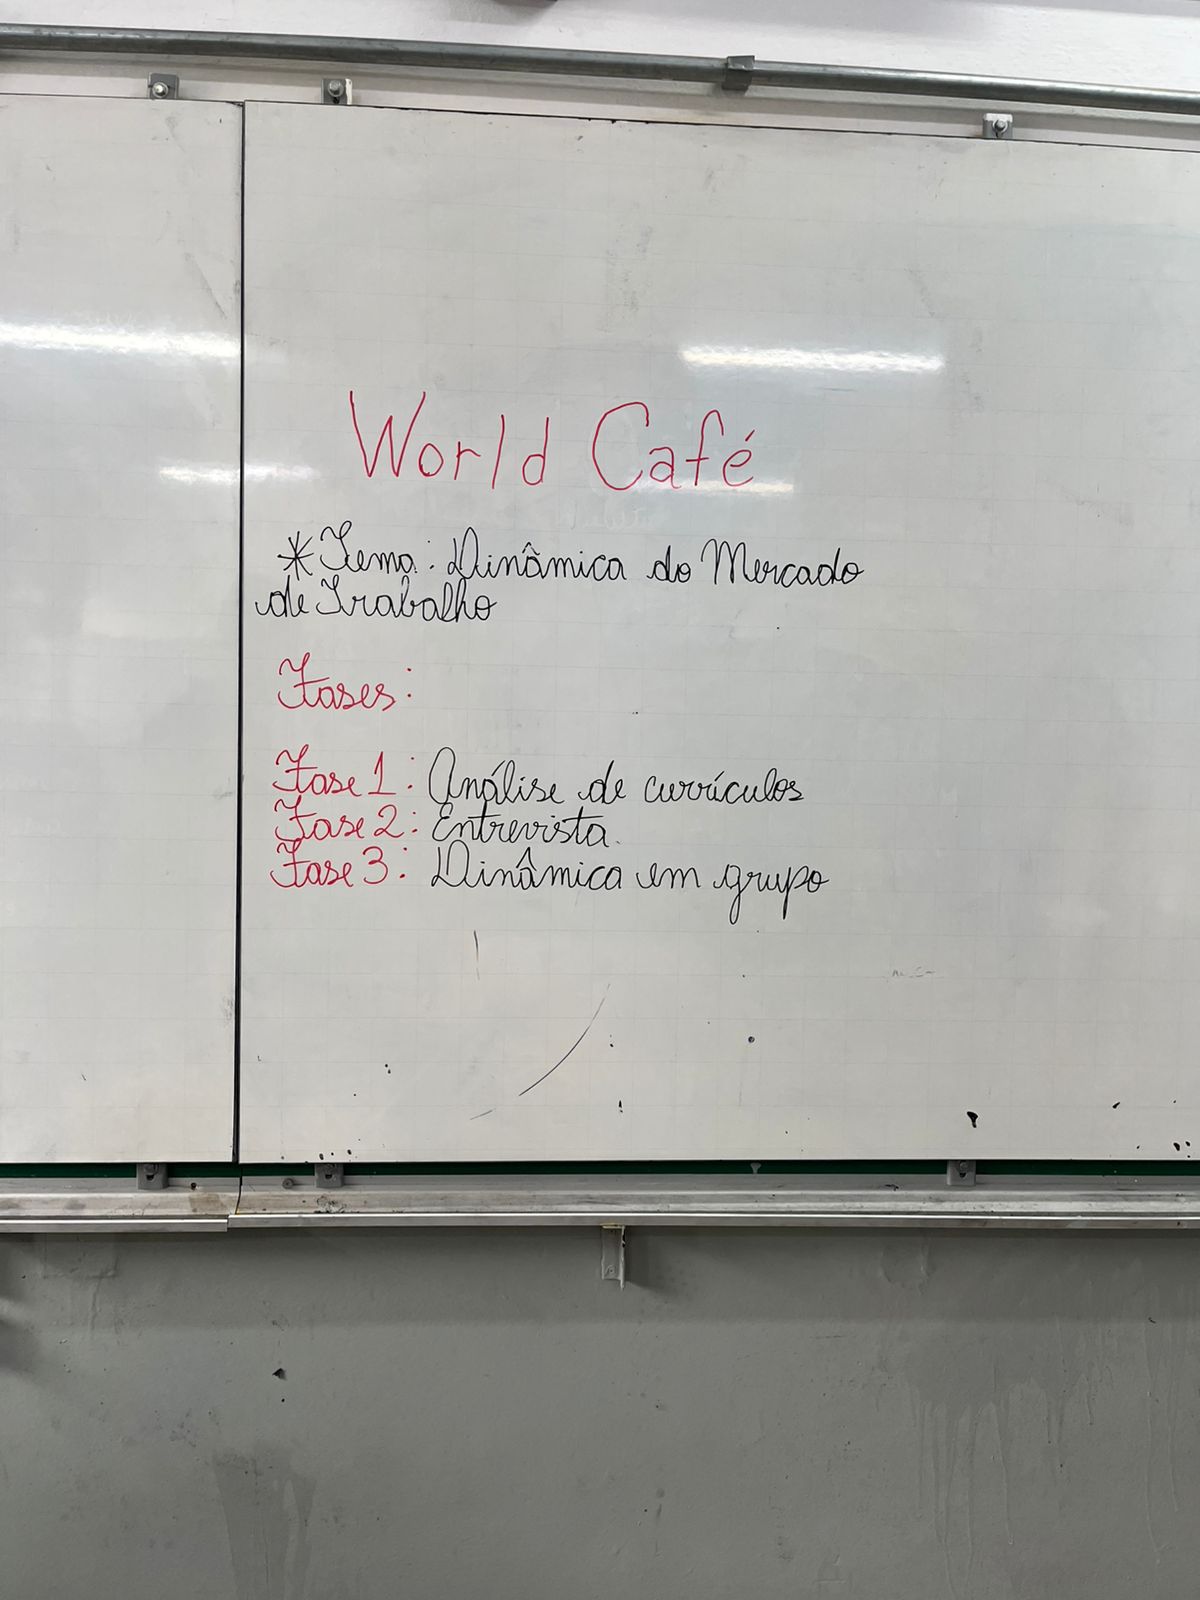 World Café
* Tema: Dinâmica do Mercado
de Trabalho
Fases:
Fase 1: Análise de currículos
Fase 2: Entrevista.
Fase 3: Dinâmica em grupo